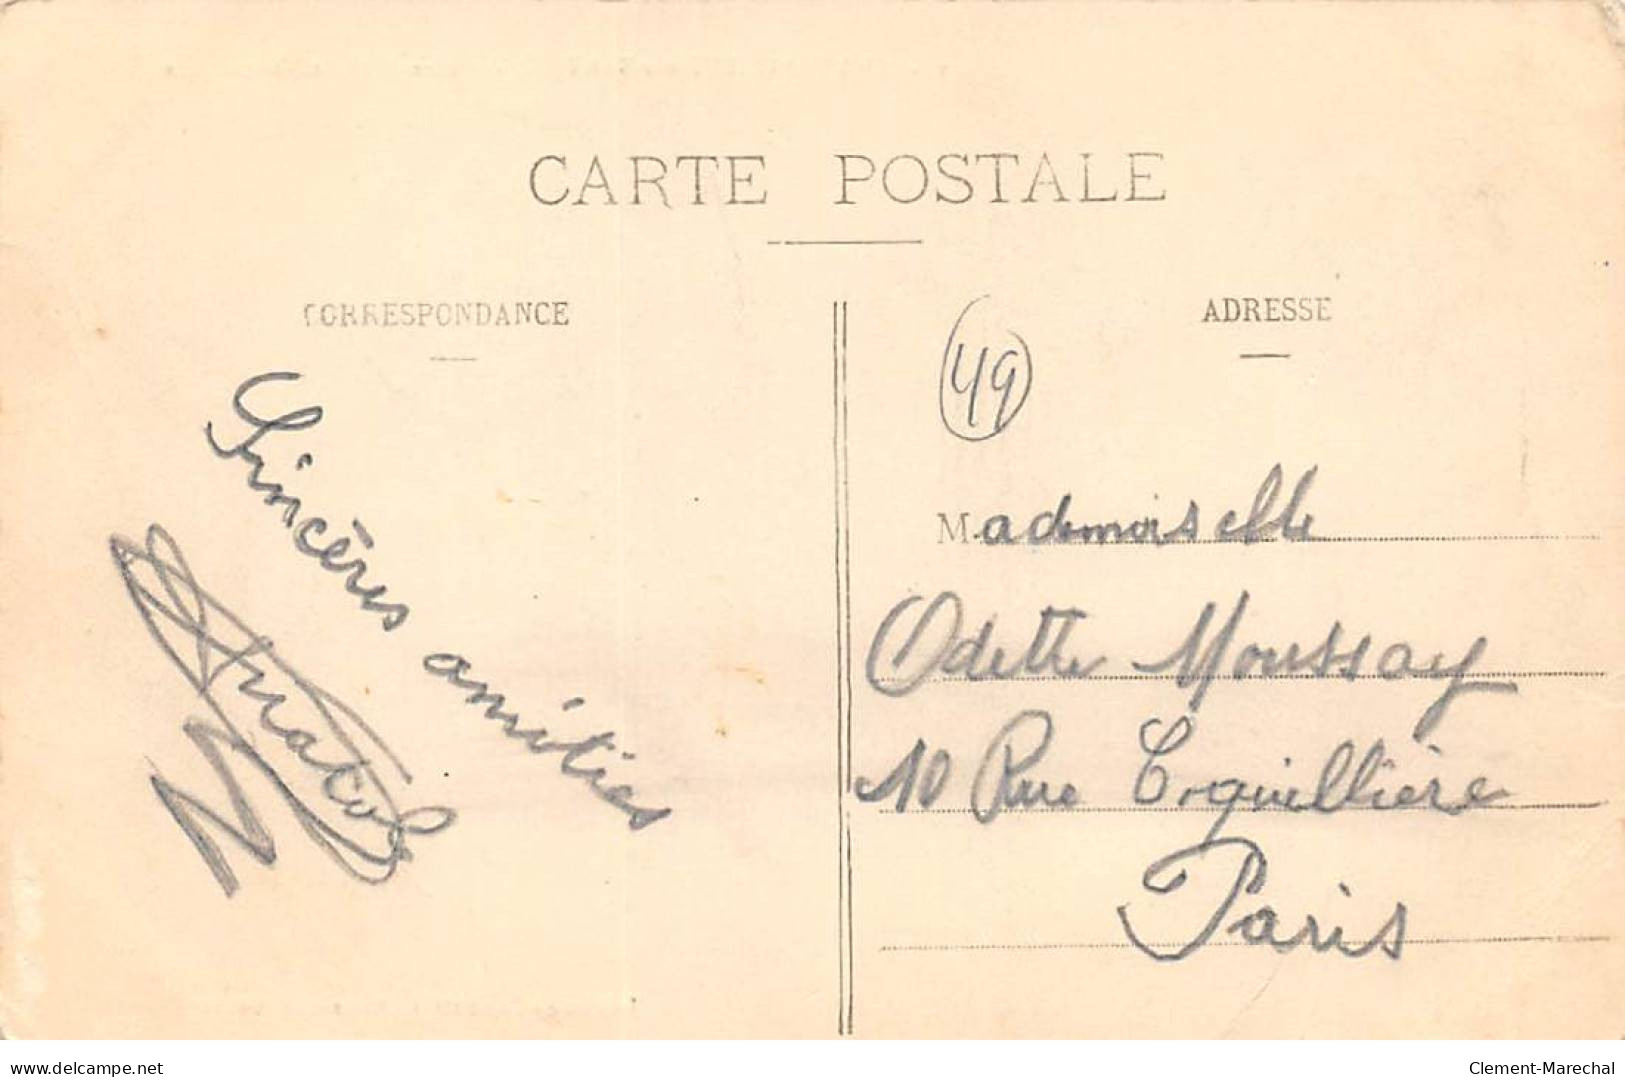 CARTE POSTALE
CORRESPONDANCE
Sincères amitiés
ADRESSE
49
Mademoiselle
Odette Moussay
10 Rue Coquillière
Paris
delcampe.net
Clement-Marechal